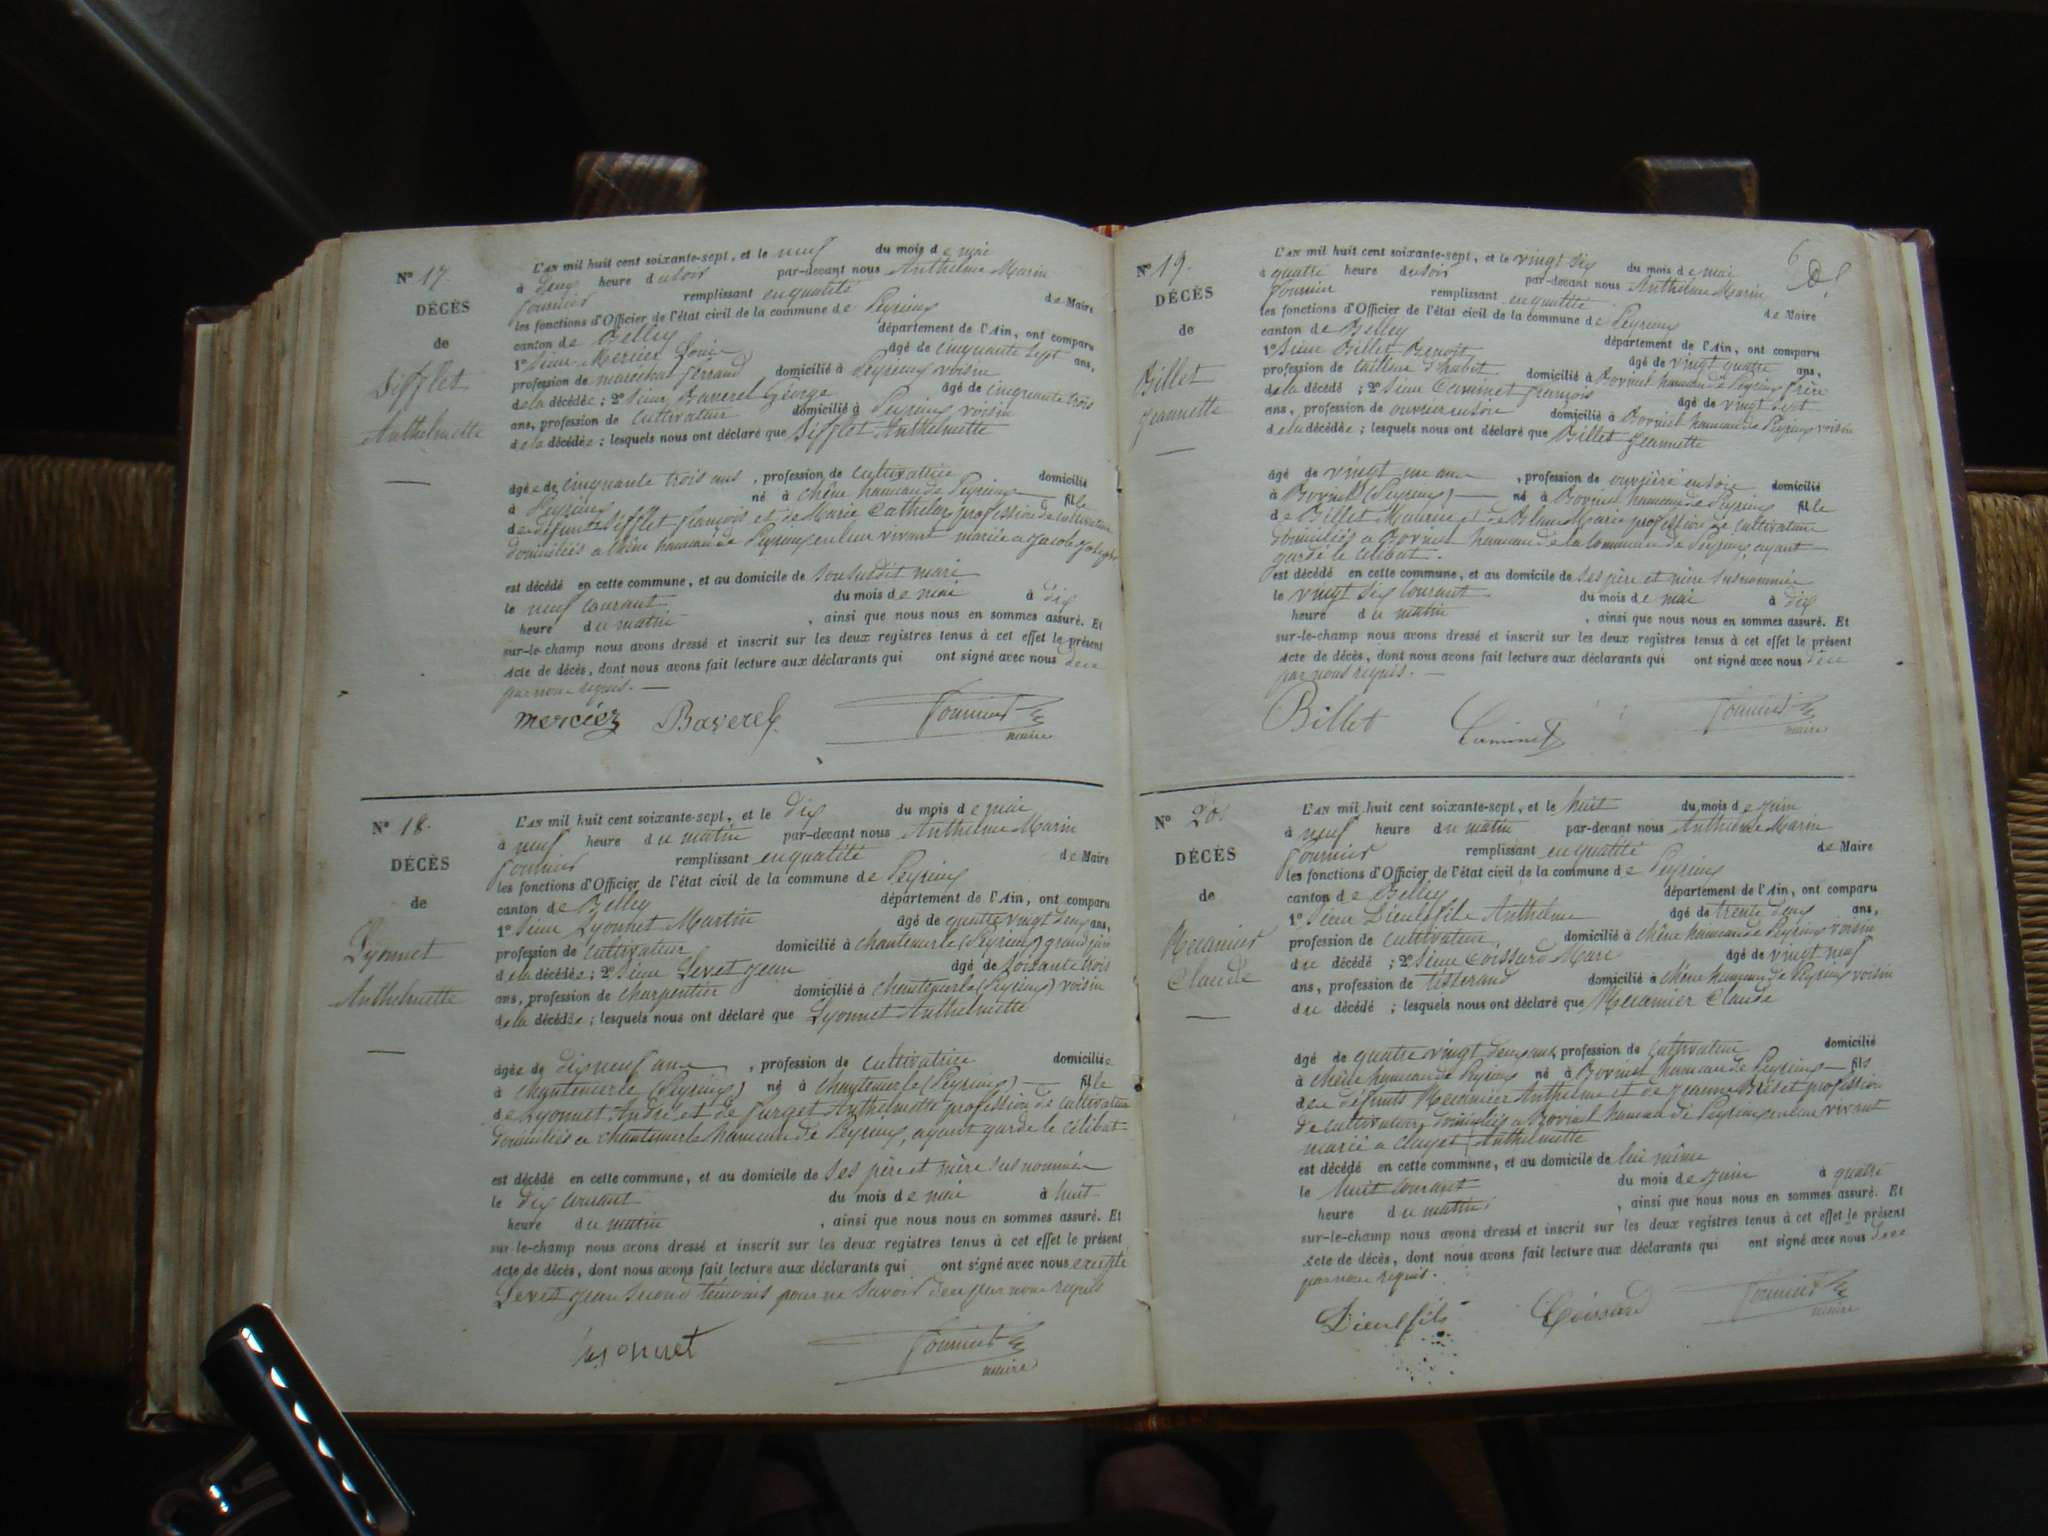 N° 17.
DÉCÈS
de
Sifflet
Anthelmette
L'AN mil huit cent soixante-sept, et le neuf du mois de mai
à deux heure du soir par-devant nous Anthelme Marin
Fournier remplissant en qualité de Maire
les fonctions d'Officier de l'état civil de la commune de Peyrieux
canton de Belley département de l'Ain, ont comparu
1° Sieur Mercier Louis âgé de cinquante sept ans,
profession de maréchal ferrand domicilié à Peyrieux voisin
de la décédée ; 2° Sieur Baverel George âgé de cinquante trois
ans, profession de cultivateur domicilié à Peyrieux voisin
de la décédée ; lesquels nous ont déclaré que Sifflet Anthelmette
âgée de cinquante trois ans, profession de cultivatrice domicilié
à Peyrieux né à chêne hameau de Peyrieux fille
de défunts Sifflet françois et de Marie Cathelin profession de cultivateur
domiciliés a chêne hameau de Peyrieux en leur vivant mariée a Jacob Joseph
est décédé en cette commune, et au domicile de son susdit mari
le neuf courant du mois de mai à dix
heure du matin, ainsi que nous nous en sommes assuré. Et
sur-le-champ nous avons dressé et inscrit sur les deux registres tenus à cet effet le présent
acte de décès, dont nous avons fait lecture aux déclarants qui ont signé avec nous dece
par nous requis.
merciez Baverel Fournier
maire
N° 18.
DÉCÈS
de
Lyonnet
Anthelmette
L'AN mil huit cent soixante-sept, et le dix du mois de mai
à neuf heure du matin par-devant nous Anthelme Marin
Fournier remplissant en qualité de Maire
les fonctions d'Officier de l'état civil de la commune de Peyrieux
canton de Belley département de l'Ain, ont comparu
1° Sieur Lyonnet Martin âgé de quatre vingt deux ans,
profession de cultivateur domicilié à chantemerle (Peyrieux) grand père
de la décédée ; 2° Sieur Levet Jean âgé de soixante trois
ans, profession de charpentier domicilié à chantemerle (Peyrieux) voisin
de la décédée ; lesquels nous ont déclaré que Lyonnet Anthelmette
âgée de dix neuf ans, profession de cultivatrice domiciliée
à chantemerle (Peyrieux) né à chantemerle (Peyrieux) fille
de Lyonnet André et de Furget Anthelmette profession de cultivateur
domiciliés a chantemerle hameau de Peyrieux, ayant gardé le célibat
est décédé en cette commune, et au domicile de ses père et mère sus nommée
le dix courant du mois de mai à huit
heure du matin, ainsi que nous nous en sommes assuré. Et
sur-le-champ nous avons dressé et inscrit sur les deux registres tenus à cet effet le présent
acte de décès, dont nous avons fait lecture aux déclarants qui ont signé avec nous excepté
Levet Jean second témoins pour ne savoir dece par nous requis
Lyonnet Fournier
maire
6
N° 19.
DÉCÈS
de
Billet
Jeannette
L'AN mil huit cent soixante-sept, et le vingt six du mois de mai
à quatre heure du soir par-devant nous Anthelme Marin
Fournier remplissant en qualité de Maire
les fonctions d'Officier de l'état civil de la commune de Peyrieux
canton de Belley département de l'Ain, ont comparu
1° Sieur Billet Benoit âgé de vingt quatre ans,
profession de tailleur d'habit domicilié à Bovinel hameau de Peyrieux frère
de la décédé ; 2° Sieur Caminet françois âgé de vingt sept
ans, profession de ouvrier en soie domicilié à Bovinel hameau de Peyrieux voisin
de la décédée ; lesquels nous ont déclaré que Billet Jeannette
âgé de vingt un ans, profession de ouvrière en soie domicilié
à Bovinel (Peyrieux) né à Bovinel hameau de Peyrieux fille
de Billet Maurice et de Blanc Marie profession de cultivateur
domiciliés a Bovinel hameau de la commune de Peyrieux, ayant
gardé le célibat.
est décédé en cette commune, et au domicile de ses père et mère susnommée
le vingt six courant du mois de mai à dix
heure du matin, ainsi que nous nous en sommes assuré. Et
sur-le-champ nous avons dressé et inscrit sur les deux registres tenus à cet effet le présent
acte de décès, dont nous avons fait lecture aux déclarants qui ont signé avec nous dece
par nous requis.
Billet Caminet Fournier
maire
N° 20
DÉCÈS
de
Meranier
Claude
L'AN mil huit cent soixante-sept, et le huit du mois de juin
à neuf heure du matin par-devant nous Anthelme Marin
Fournier remplissant en qualité de Maire
les fonctions d'Officier de l'état civil de la commune de Peyrieux
canton de Belley département de l'Ain, ont comparu
1° Sieur Dieulefils Anthelme âgé de trente deux ans,
profession de cultivateur domicilié à chêne hameau de Peyrieux voisin
du décédé ; 2° Sieur Coissard Marc âgé de vingt neuf
ans, profession de tisserand domicilié à chêne hameau de Peyrieux voisin
du décédé ; lesquels nous ont déclaré que Meranier Claude
âgé de quatre vingt deux ans, profession de cultivateur domicilié
à chêne hameau de Peyrieux né à Bovinel hameau de Peyrieux fils
de défunts Meranier Anthelme et de Jeanne Billet profession
de cultivateur domiciliés a Bovinel hameau de Peyrieux en leur vivant
marié a Clayet Anthelmette
est décédé en cette commune, et au domicile de lui même
le huit courant du mois de juin à quatre
heure du matin, ainsi que nous nous en sommes assuré. Et
sur-le-champ nous avons dressé et inscrit sur les deux registres tenus à cet effet le présent
acte de décès, dont nous avons fait lecture aux déclarants qui ont signé avec nous dece
par nous requis.
Dieulfils Coissard Fournier
maire